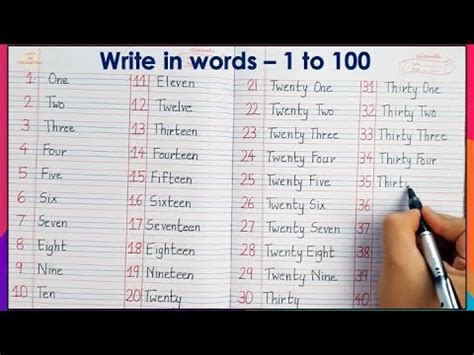 Write in words – 1 to 100
1 One
2 Two
3 Three
4 Four
5 Five
6 Six
7 Seven
8 Eight
9 Nine
10 Ten
11 Eleven
12 Twelve
13 Thirteen
14 Fourteen
15 Fifteen
16 Sixteen
17 Seventeen
18 Eighteen
19 Nineteen
20 Twenty
21 Twenty One
22 Twenty Two
23 Twenty Three
24 Twenty Four
25 Twenty Five
26 Twenty Six
27 Twenty Seven
28 Twenty Eight
29 Twenty Nine
30 Thirty
31 Thirty One
32 Thirty Two
33 Thirty Three
34 Thirty Four
35 Thirty
36
37
38
39
40